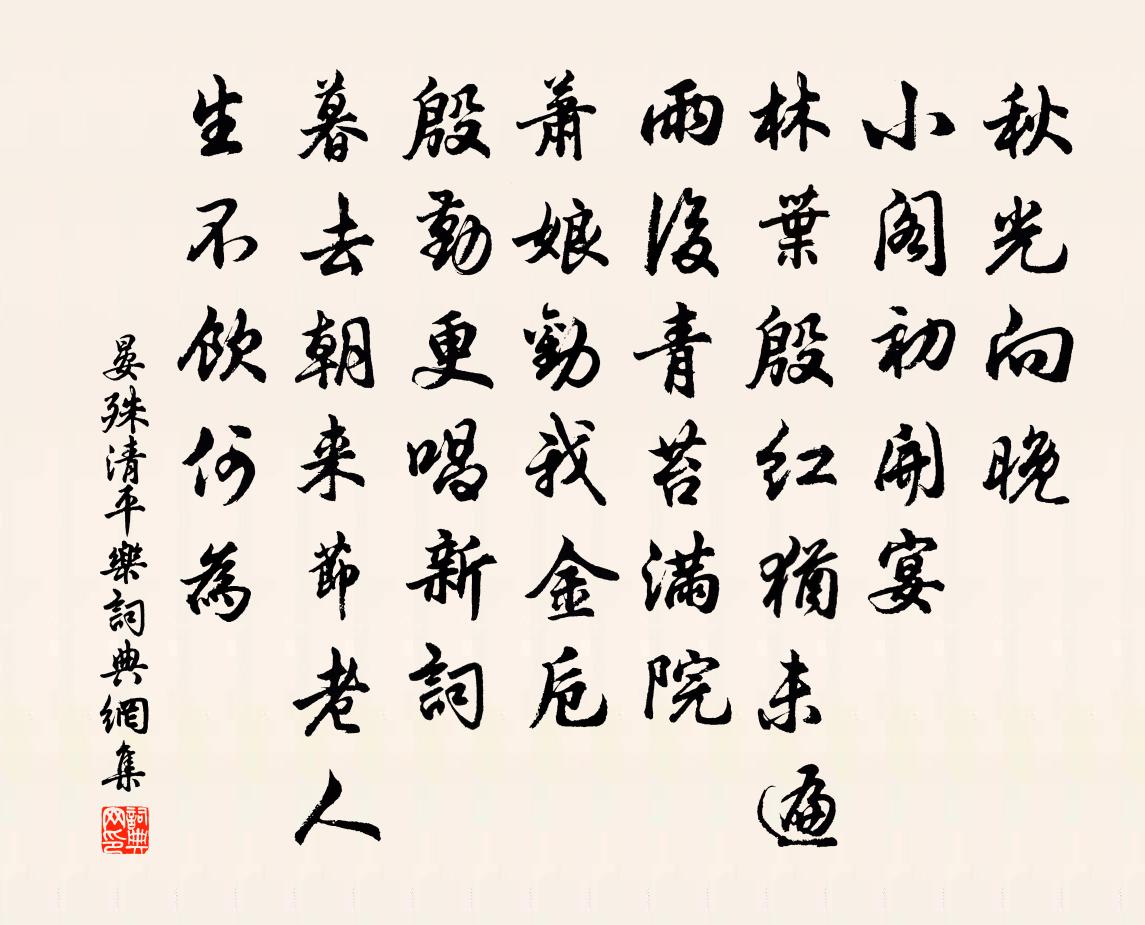 秋光向晚
小阁初開宴
林葉殷红猶未遍
雨後青苔滿院
萧娘勸我金卮
殷勤更唱新詞
暮去朝来節老人
生不飲何為
晏殊清平樂詞典網集
詞典网印